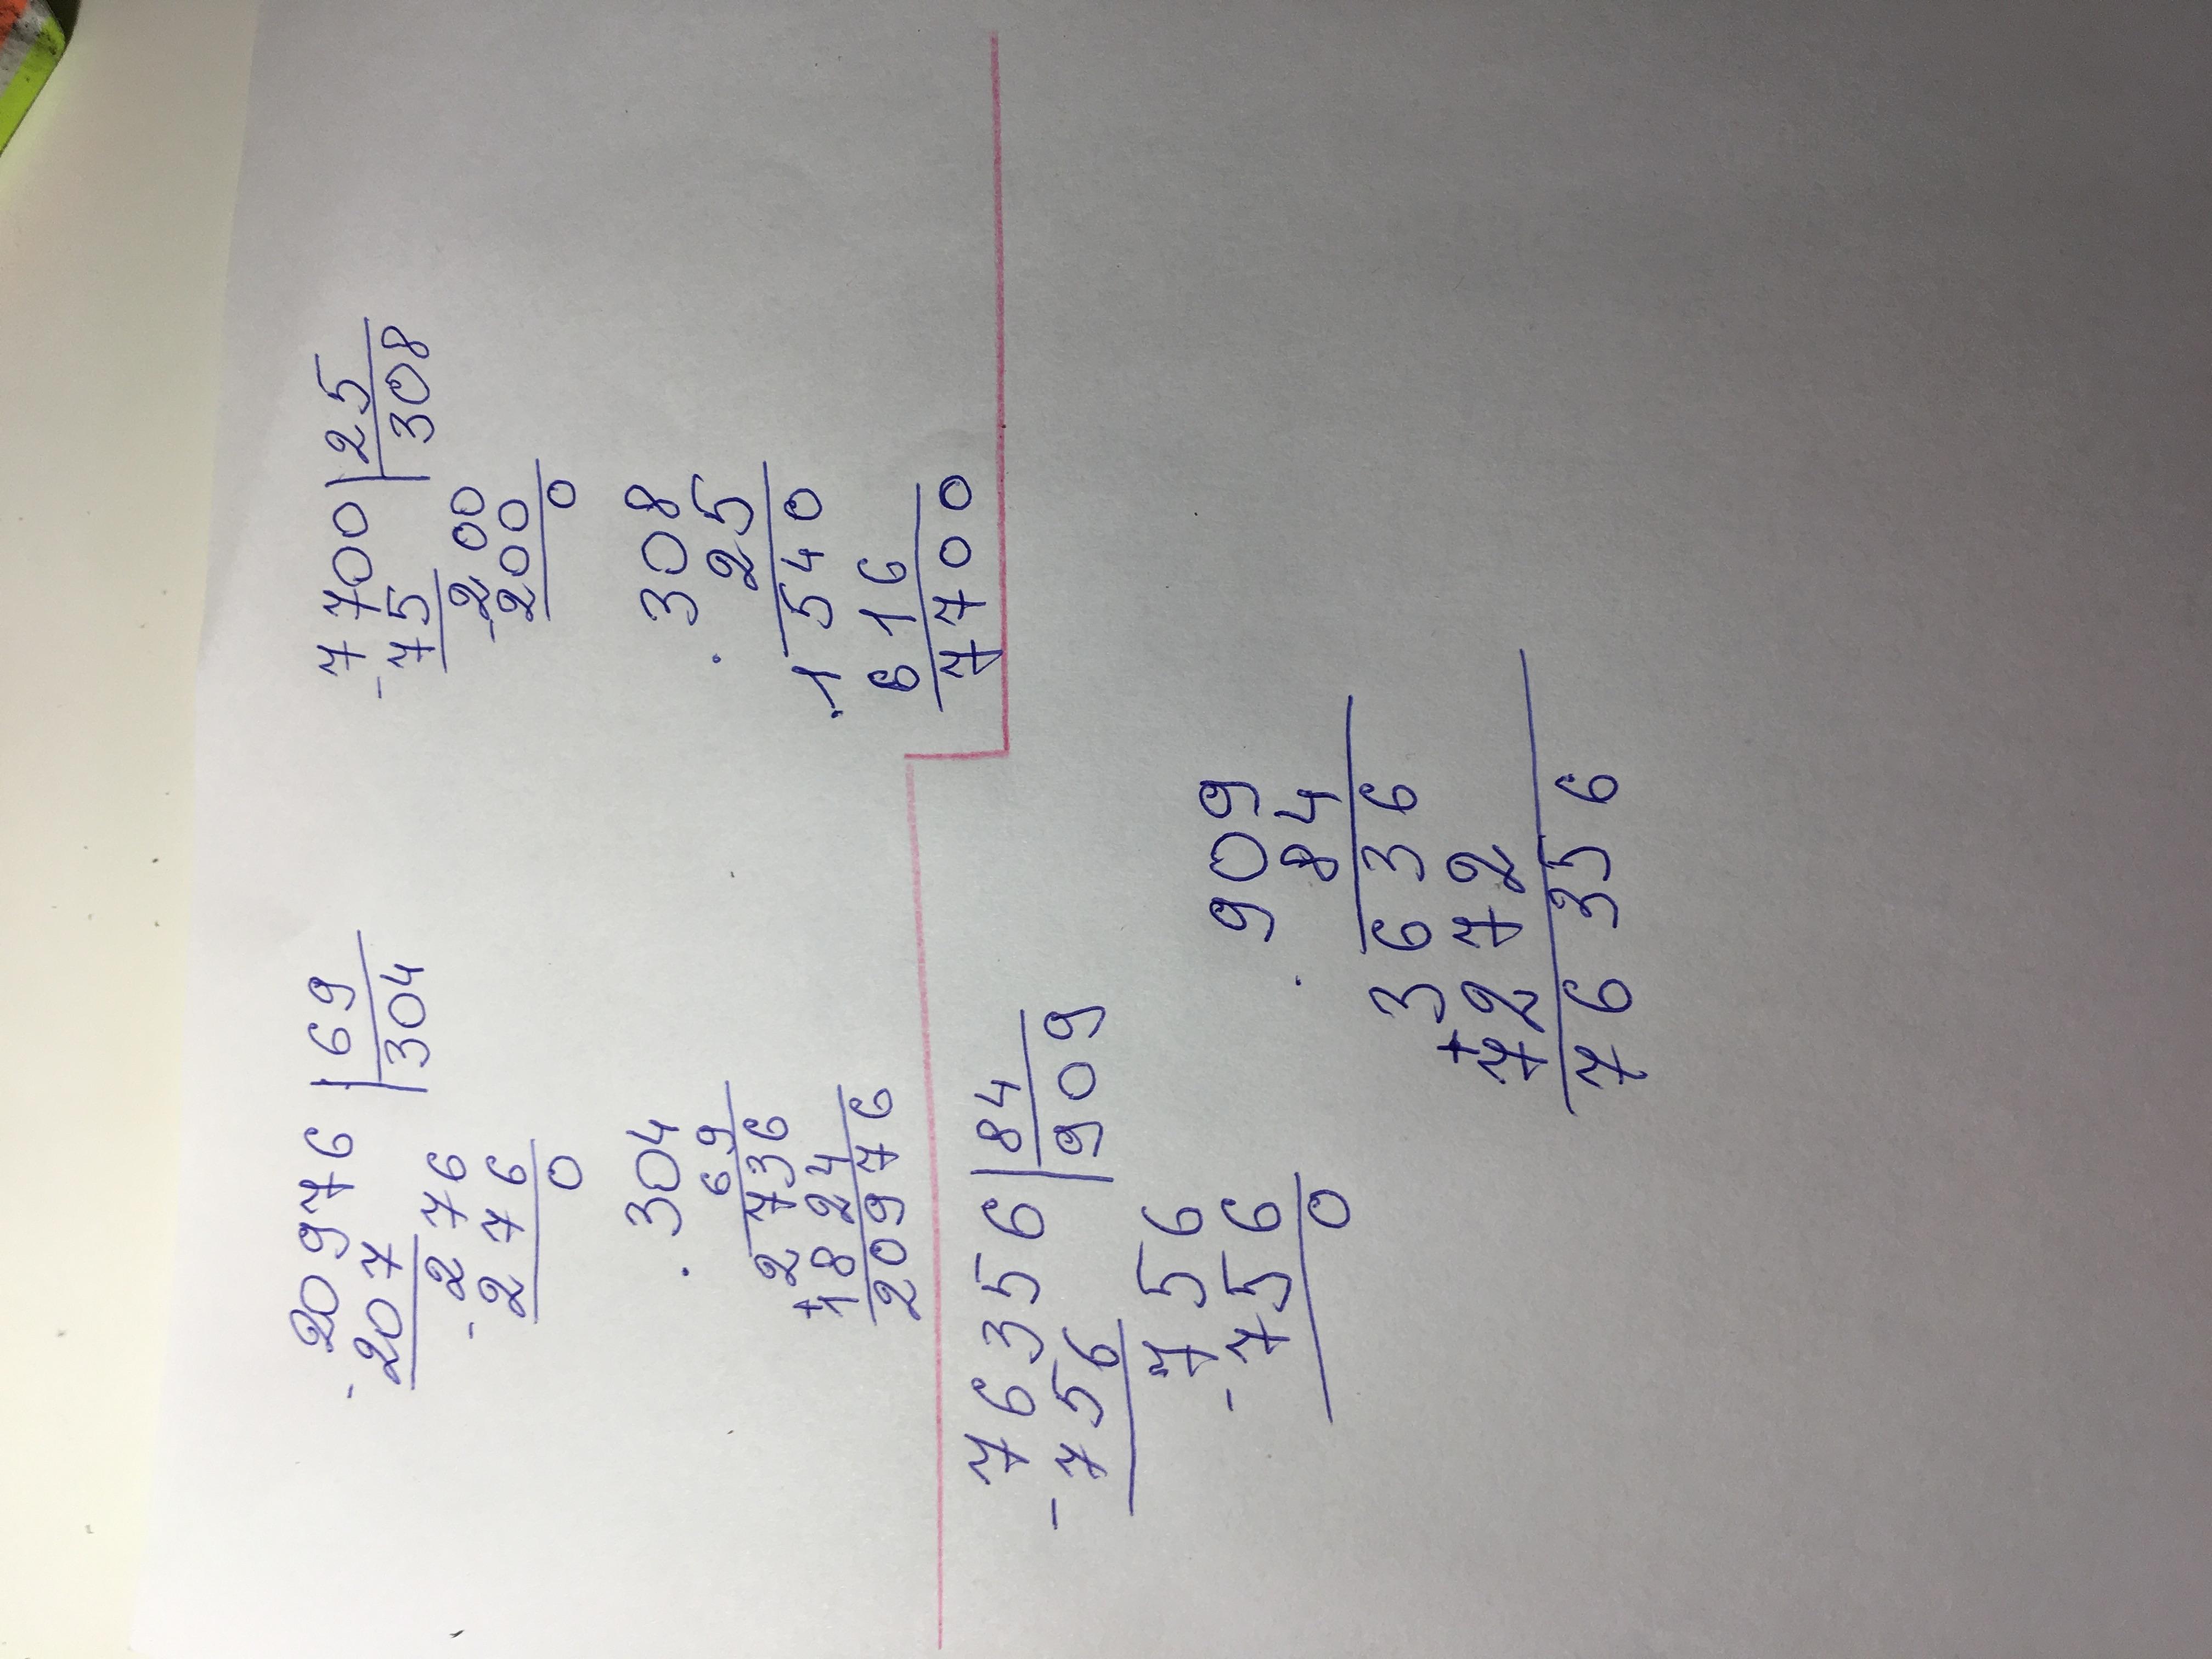 20976 | 69
- 207 | 304
276
- 276
0
. 304
69
2736
+ 1824
20976
7700 | 25
- 75 | 308
200
- 200
0
308
. 25
1540
+ 616
7700
76356 | 84
- 756 | 909
756
- 756
0
909
. 84
3636
+ 7272
76356